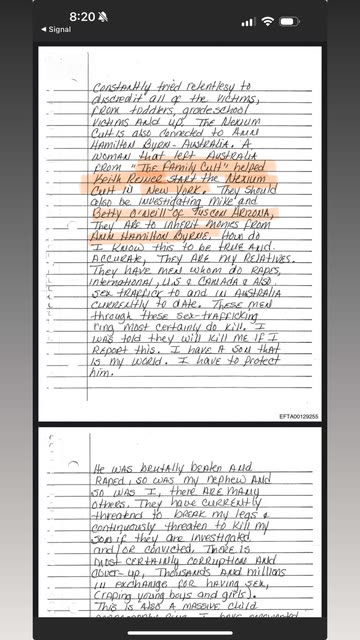 8:20
Signal
Constantly tried relentlesy to
discredit all of the victims,
from toddlers, gradeschool
victims and up. The Nexium
Cult is also connected to Ann
Hamilton Byrn-Australia. A
woman that left Australia
from "The Family Cult" helped
Keith Reiner start the Nexium
Cult in New York. They should
also be investigating Mike and
Betty O'Neill of Tuscon Arizona,
They are to inherit monies from
Ann Hamilton Byrne. How do
I know this to be true and
accurate, they are my relatives.
They have men whom do rapes,
international, U.S & Canada & Also
sex traffice to and in Australia
currently to date. These men
through these sex-trafficking
ring most certainly do kill. I
was told they will kill me if I
report this. I have a son that
is my world. I have to protect
him.
EFTA00129255
He was brutally beaten and
raped, so was my nephew and
so was I, there are many
others. They have currently
threatnd to break my legs &
continuously threaten to kill my
son if they are investigated
and/or convicted. There is
most certainly corruption and
cover-up, Thousands and millions
in exchange for having sex,
(raping young boys and girls).
This is also a massive child